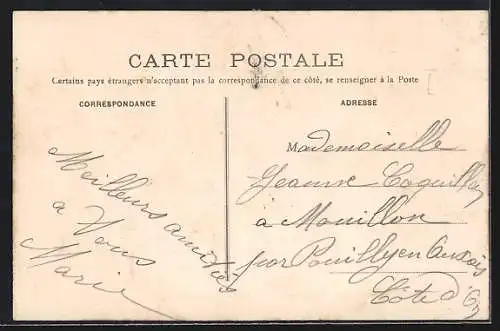 CARTE POSTALE
Certains pays étrangers n'acceptant pas la correspondance de ce côté, se renseigner à la Poste
CORRESPONDANCE
ADRESSE
Meilleurs amitiés
a Vous
Marie
Mademoiselle
Jeanne
à Mouillon
par Pouilly en Auxois
Côte d'Or